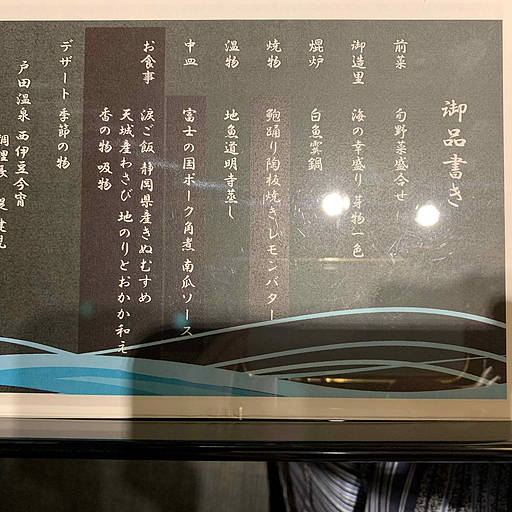 御品書き
前菜 旬野菜盛合せ
御造里 海の幸盛り 芽物一色
焜炉 白魚雲鍋
焼物 鮑踊り陶板焼き レモンバター
温物 地魚道明寺蒸し
中皿 富士の国ポーク角煮 南瓜ソース
お食事 涙ご飯 静岡県産きぬむすめ
天城産わさび 地のりとおかか和え
香の物 吸物
デザート 季節の物
戸田温泉 西伊豆今宵
調理長